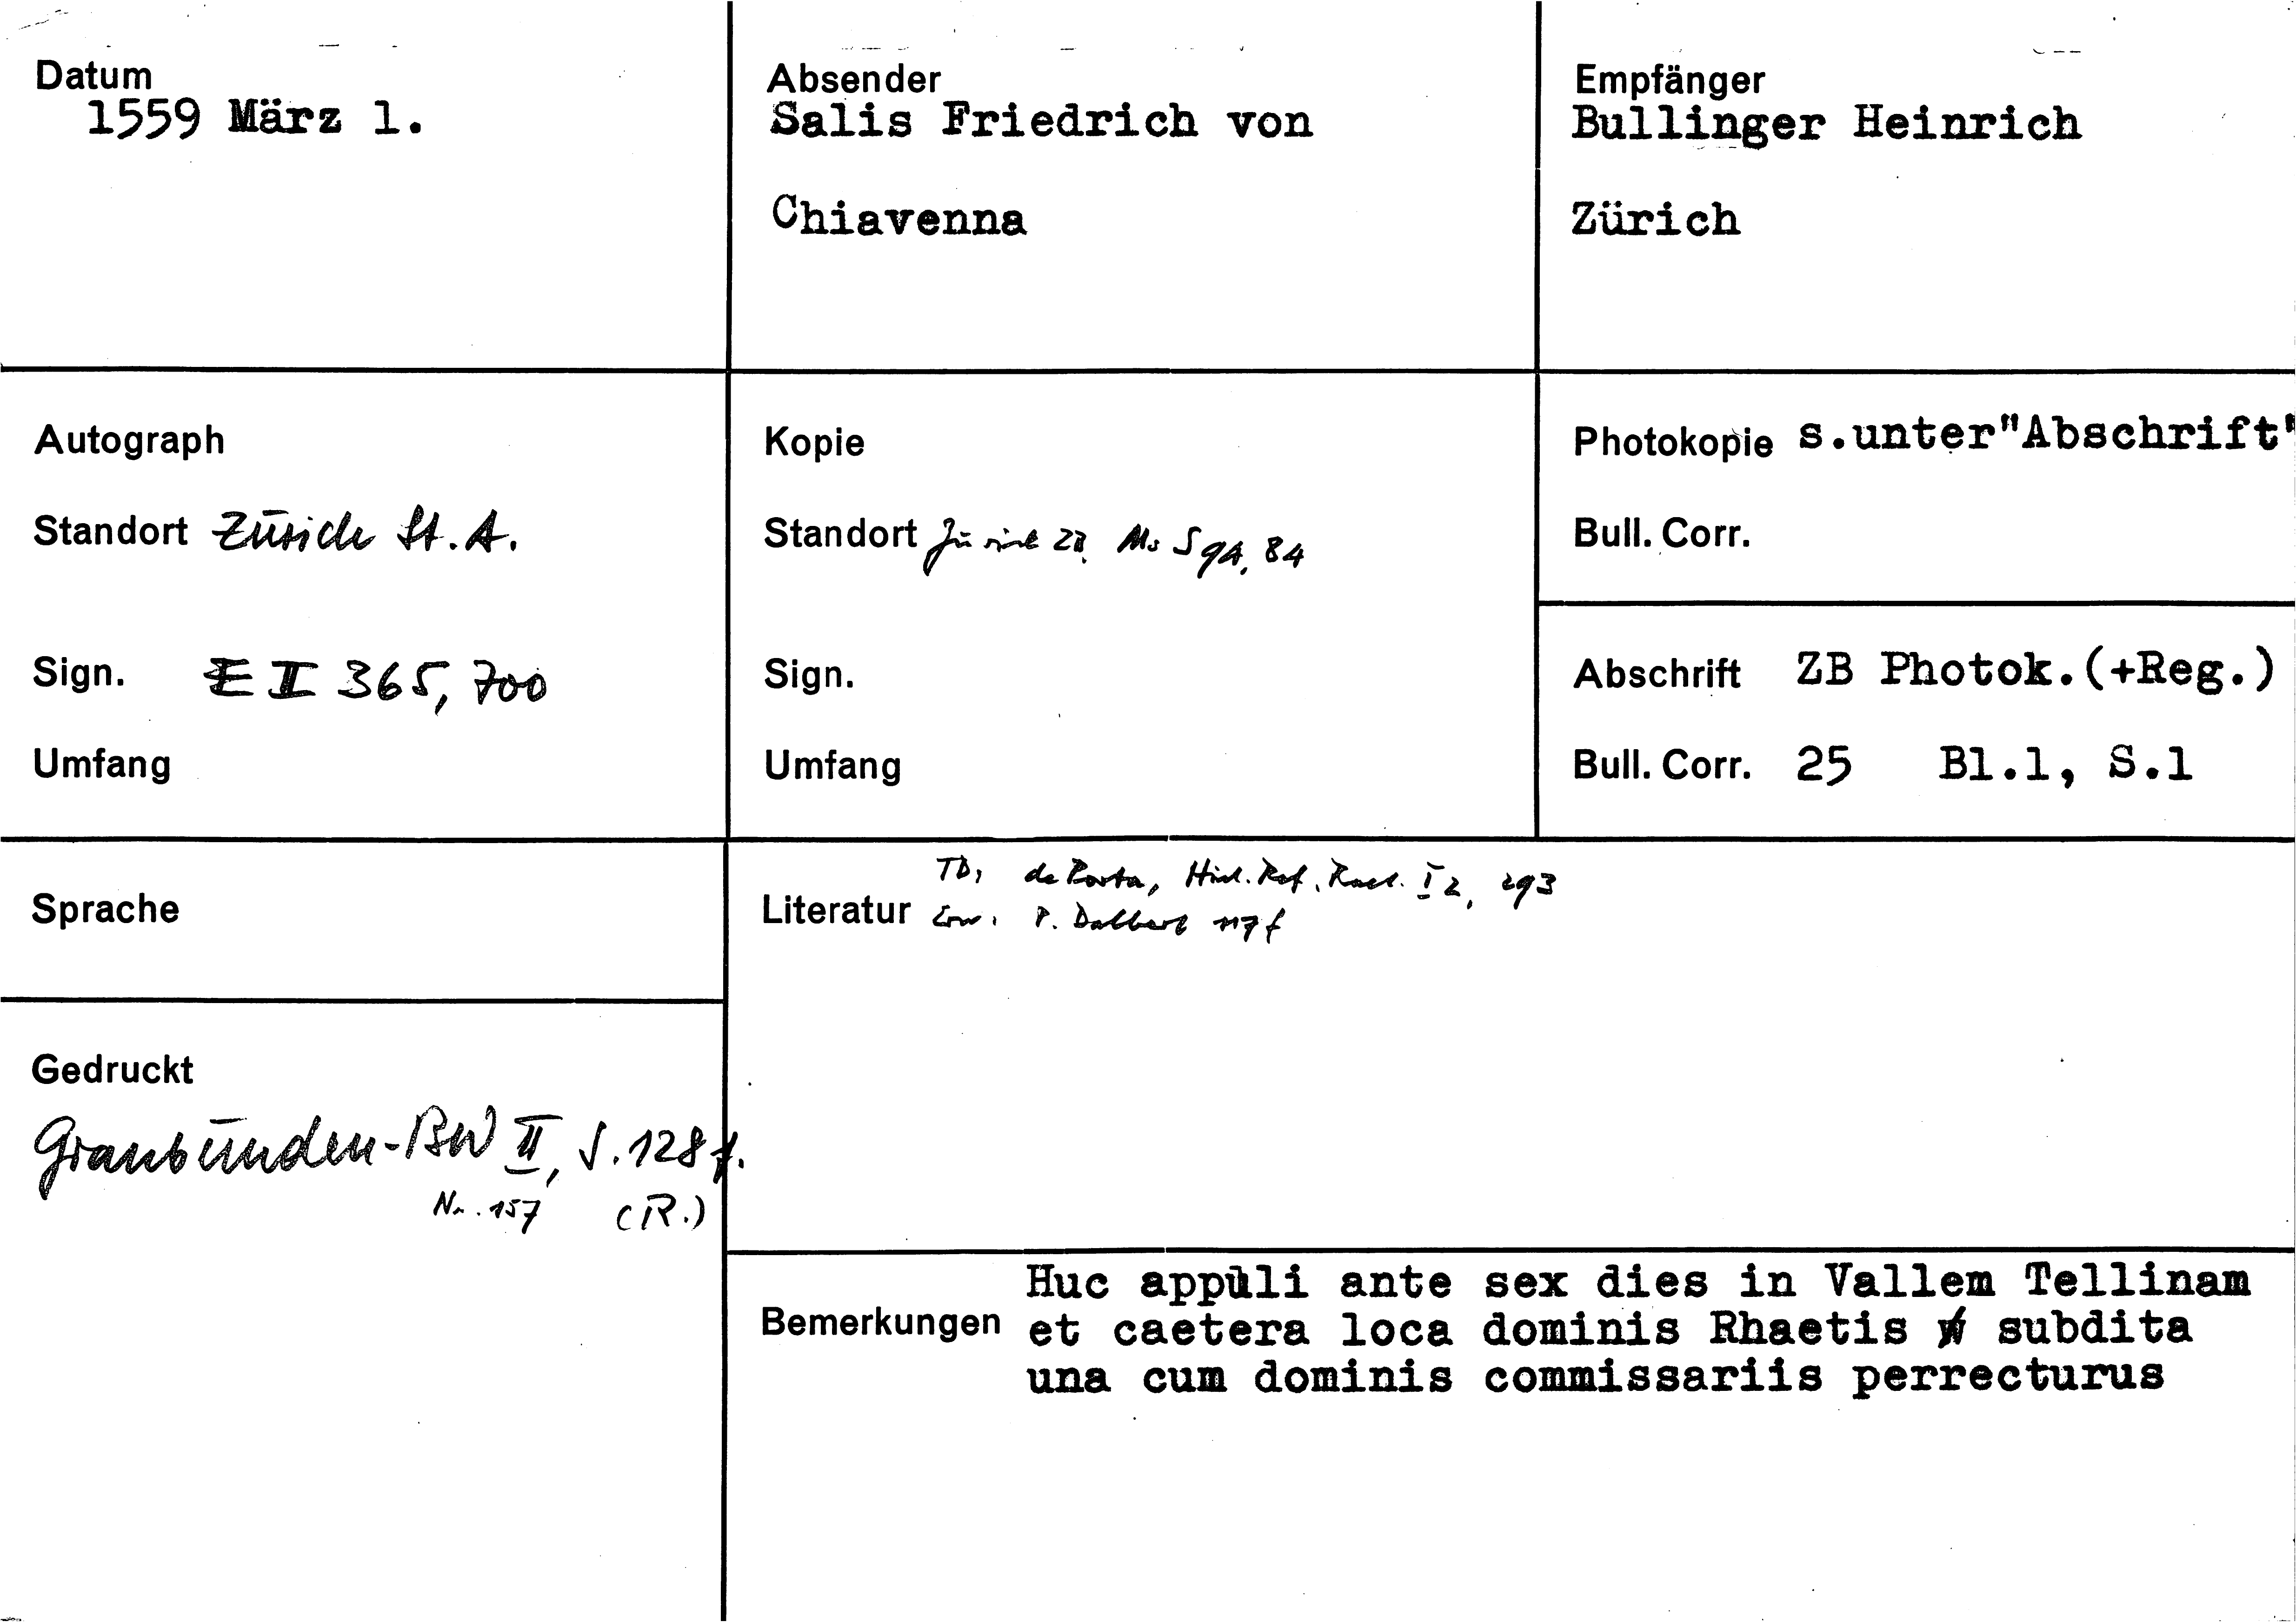 Datum
1559 März 1.
Absender
Salis Friedrich von
Chiavenna
Empfänger
Bullinger Heinrich
Zürich
Autograph
Standort Zürich St. A.
Sign. E II 365, 700
Umfang
Kopie
Standort Zürich ZB. Ms S 94, 84
Sign.
Umfang
Photokopie s.unter"Abschrift"
Bull. Corr.
Abschrift ZB Photok.(+Reg.)
Bull. Corr. 25 Bl.1, S.1
Sprache
Gedruckt
Graubünden-BW II, S. 128 f.
Nr. 157 (R.)
Literatur
de Porta, Hist. Ref. Raet. I 2, 293
P. Dalbert 117 f
Bemerkungen
Huc appuli ante sex dies in Vallem Tellinam
et caetera loca dominis Rhaetis subdita
una cum dominis commissariis perrecturus